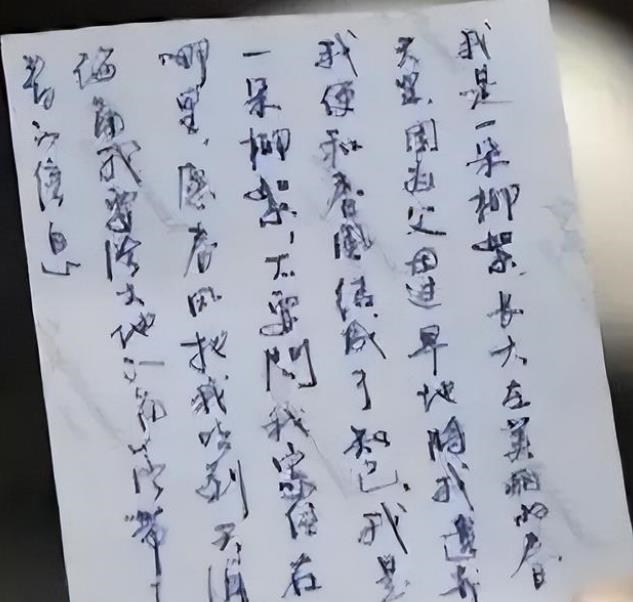 我是一朵柳絮.长大在美丽的春
天里.因为父母过早地将我遗弃
我便和春风结成了知己.我是
一朵柳絮,不要问我家住在
哪里.愿春风把我吹到天涯
海角我要给大地的角落带
春的信息」